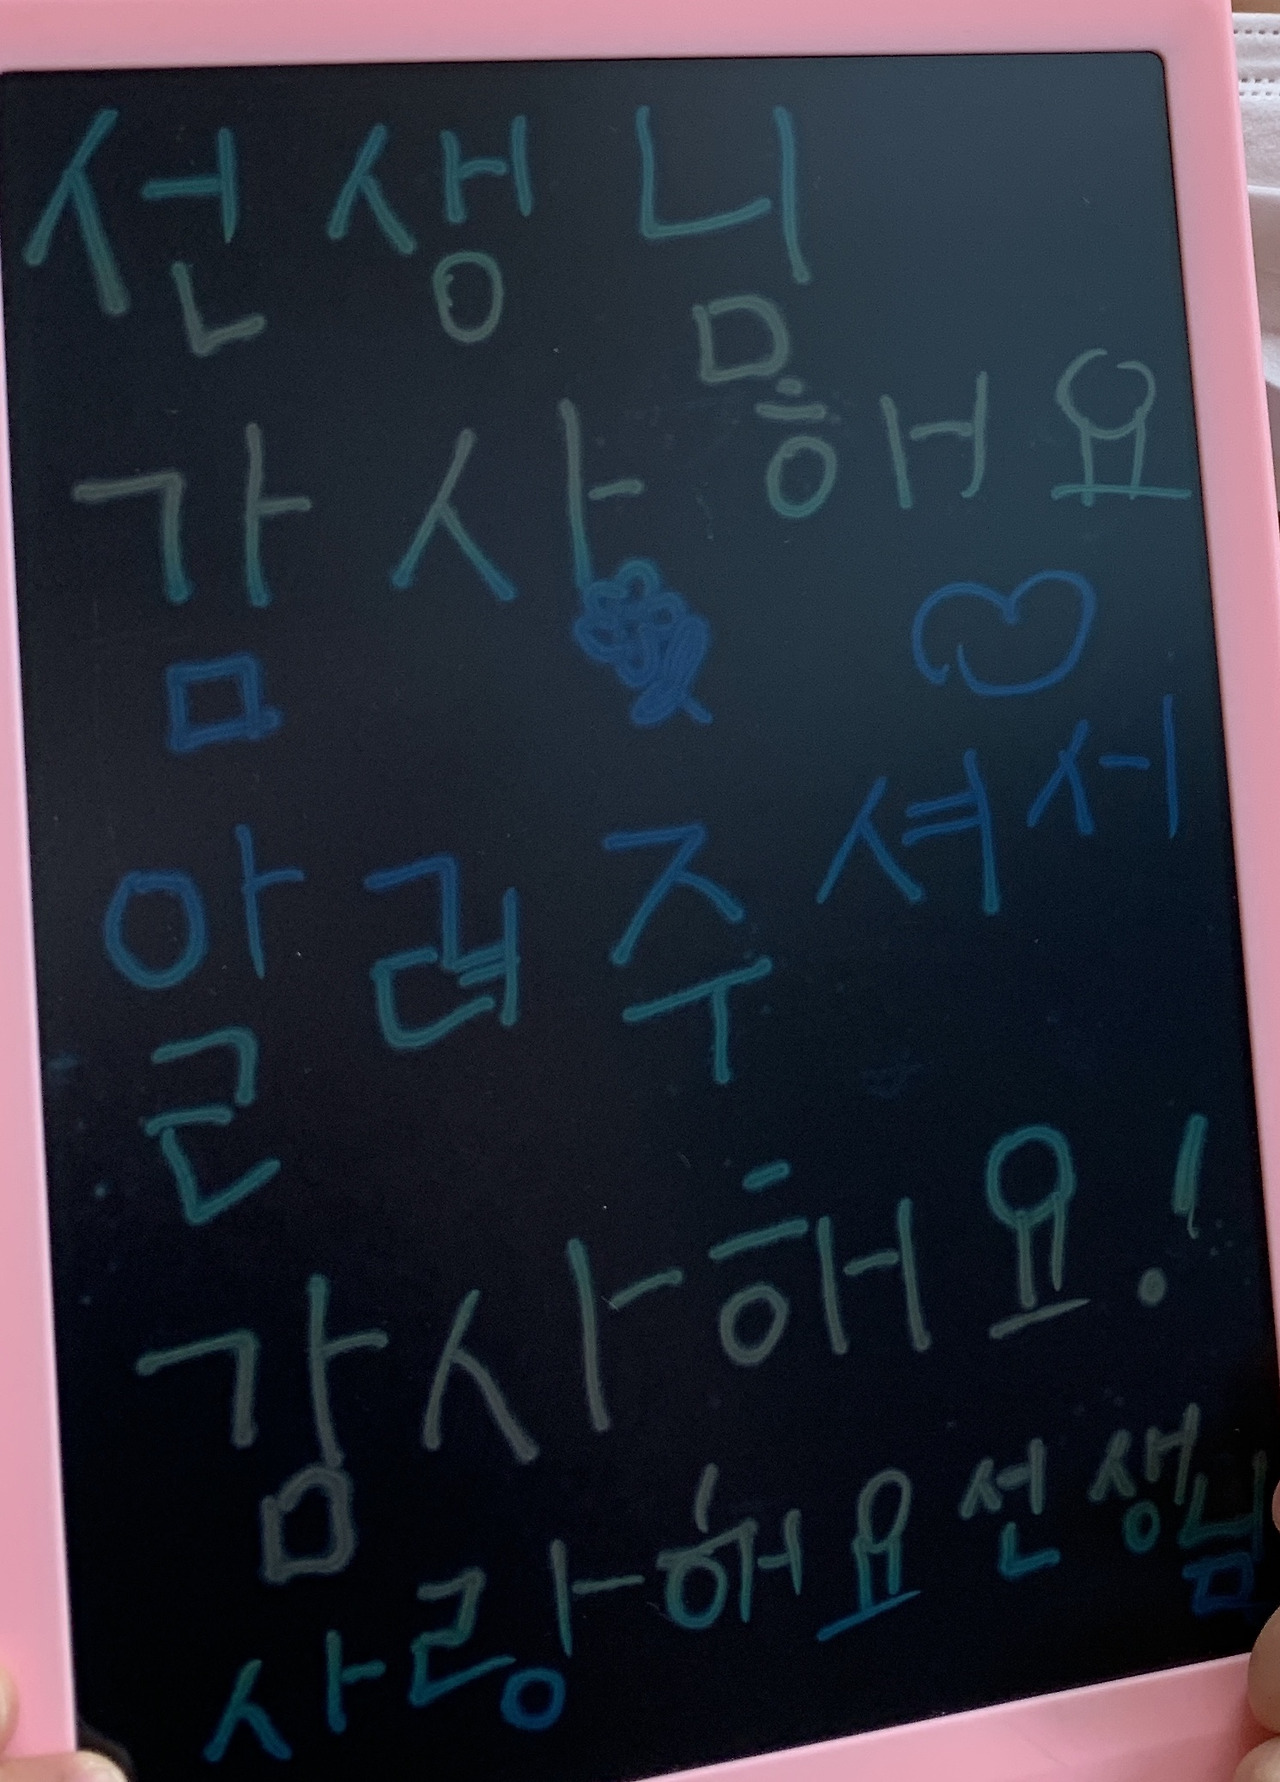 선생님
감사해요
알려주셔서
감사해요!
사랑해요 선생님